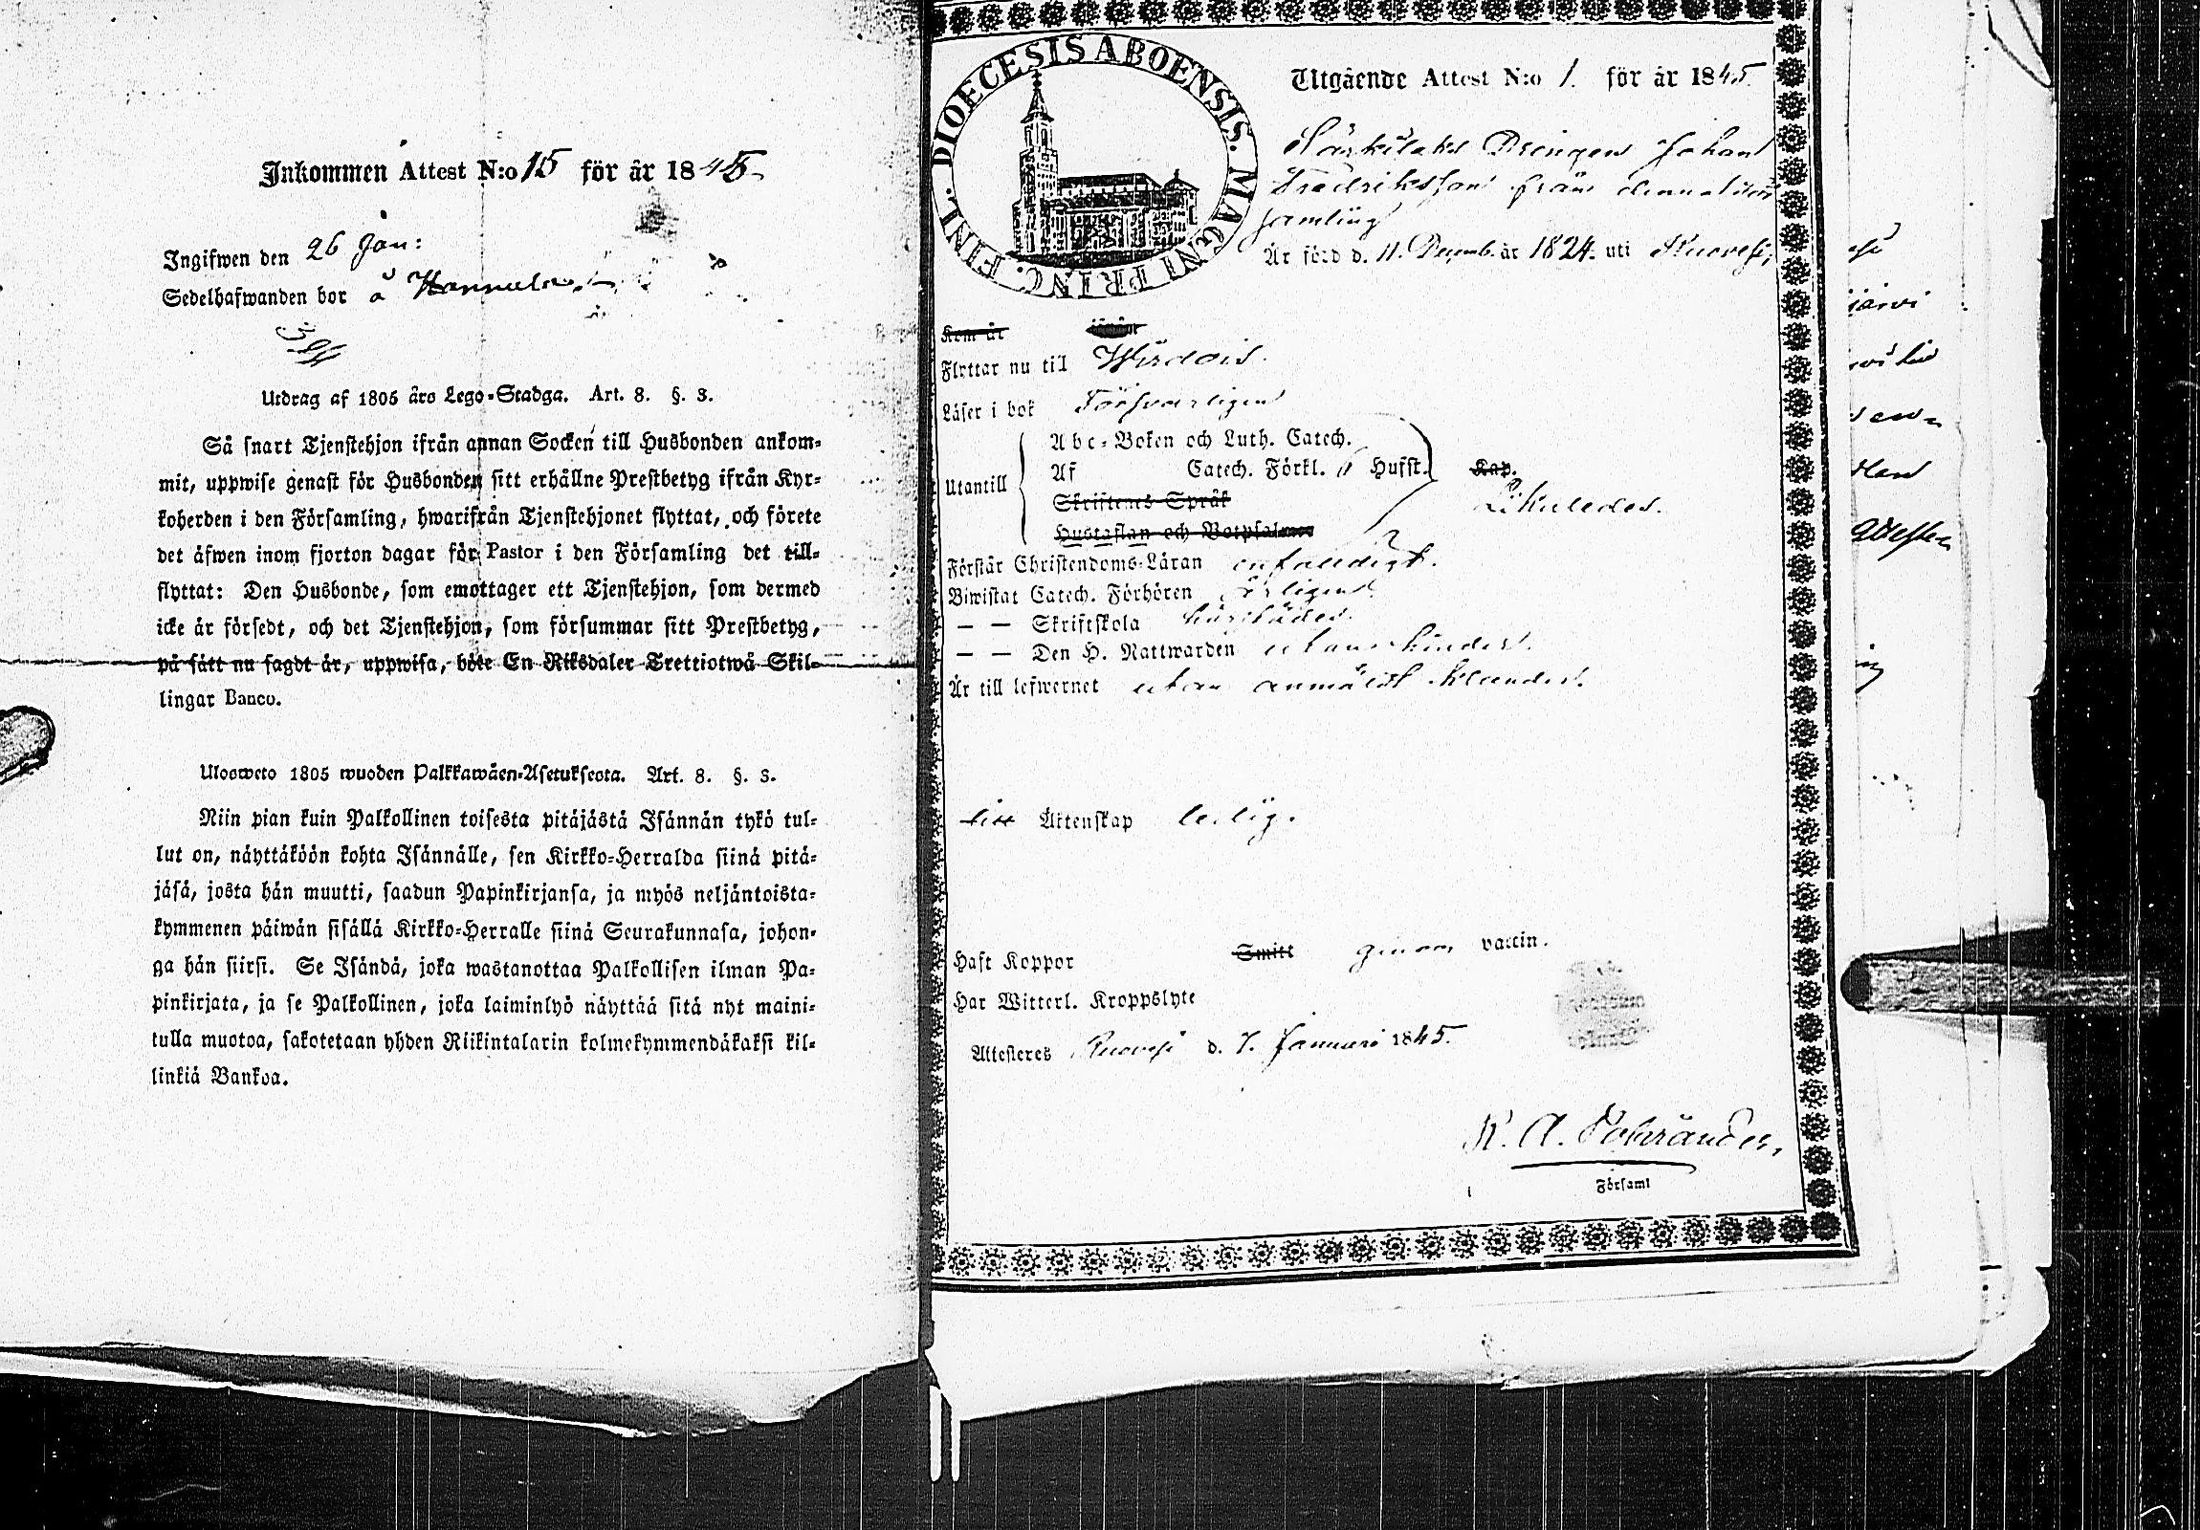 Inkommen Attest N:o 15 för år 1845
Ingifwen den 26 Jan:
Sedelhafwanden bor å
Utdrag af 1805 års Lego-Stadga. Art. 8. §. 3.
Så snart Tjenstehjon ifrån annan Socken till Husbonden ankom-
mit, uppwise genast för Husbonden sitt erhållne Prestbetyg ifrån Kyr-
koherden i den Församling, hwarifrån Tjenstehjonet flyttat, och förete
det äfwen inom fjorton dagar för Pastor i den Församling det till-
flyttat: Den Husbonde, som emottager ett Tjenstehjon, som dermed
icke är försedt, och det Tjenstehjon, som försummar sitt Prestbetyg,
på sätt nu sagdt är, uppwisa, böte En Riksdaler Trettiotwå Skil-
lingar Banco.
Ulosweto 1805 wuoden Palkkawäen-Asetuksesta. Art. 8. §. 3.
Niin pian kuin Palkollinen toisesta pitäjästä Isännän tykö tul-
lut on, näyttäköön kohta Isännälle, sen Kirkko-Herralda siinä pitä-
jäsä, josta hän muutti, saadun Papinkirjansa, ja myös neljäntoista-
kymmenen päiwän sisällä Kirkko-Herralle siinä Seurakunnasa, johon-
ga hän siirsi. Se Isändä, joka wastanottaa Palkollisen ilman Pa-
pinkirjata, ja se Palkollinen, joka laiminlyö näyttää sitä nyt maini-
tulla muotoa, sakotetaan yhden Riikintalarin kolmekymmendäkaksi kil-
linkiä Bankoa.
DIOECESIS ABOENSIS. MAGNI PRINC. FINL.
Utgående Attest N:o 1. för år 1845
Drengen Johan
Fredriksson från
samling
Är född d. 11. Decemb. år 1824. uti Ruovesi,
Kom år
Flyttar nu till Wirdois.
Läser i bok Försvarligen
Utantill
Abc-Boken och Luth. Catech.
Af Catech. Förkl. Hufst. Kap.
Skriftenes Språk
Likaledes.
Hustaflan och Botpsalmer
Förstår Christendoms-Läran enfaldigt.
Biwistat Catech. Förhören Årligen
— — Skriftskola
— — Den H. Nattwarden utan hinder.
Är till lefwernet utan anmäldt klander.
till Äktenskap ledig.
Haft Koppor Smitt genom vaccin.
Har Witterl. Kroppslyte
Attesteras Ruovesi d. 7. Januari 1845.
K. A.
Församl